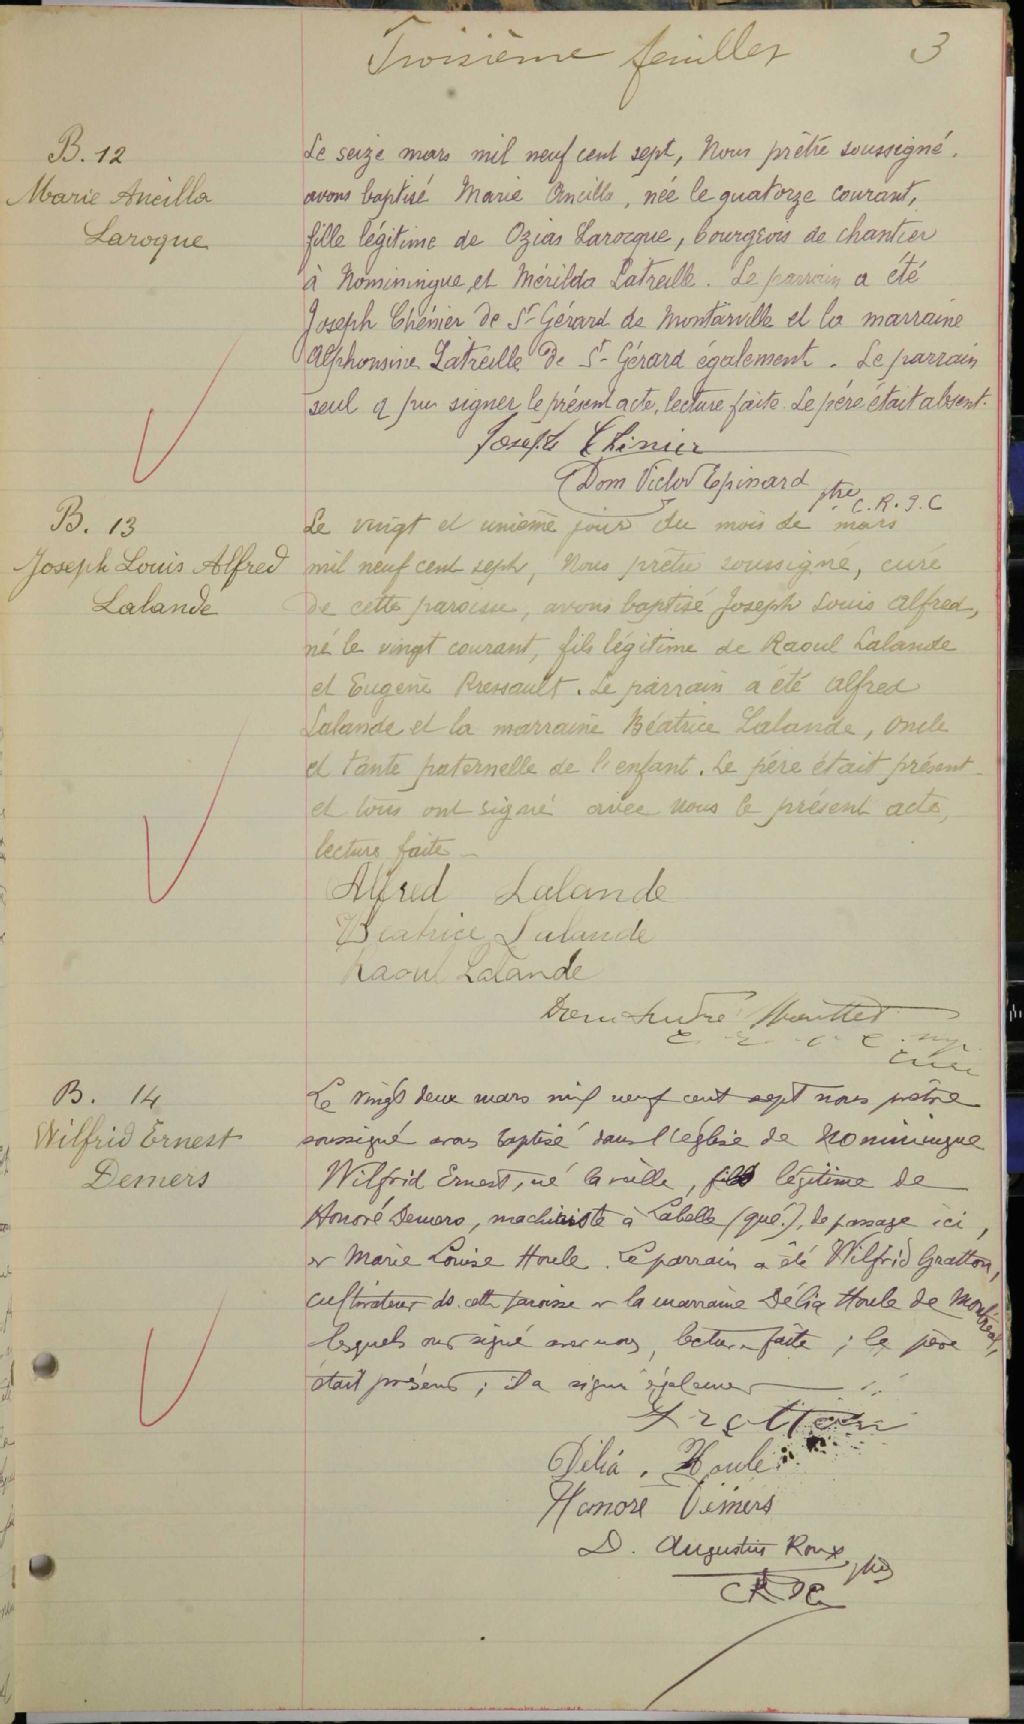 Troisième feuillet 3
B. 12
Marie Ancilla
Laroque
Le seize mars mil neuf cent sept, Nous prêtre soussigné.
avons baptisé Marie Ancilla, née le quatorze courant,
fille légitime de Ozias Larocque, bourgeois de chantier
à Nominingue, et Mérilda Latreille. Le parrain a été
Joseph Chénier de St-Gérard de Montarville et la marraine
Alphonsine Latreille de St-Gérard également. Le parrain
seul a pu signer le présent acte, lecture faite. Le père était absent.
Joseph Chénier
Dom Victor Epinard ptre
C.R.I.C
B. 13
Joseph Louis Alfred
Lalande
Le vingt et unième jour du mois de mars
mil neuf cent sept, Nous prêtre soussigné, curé
de cette paroisse, avons baptisé Joseph Louis Alfred,
né le vingt courant, fils légitime de Raoul Lalande
et Eugénie Pressault. Le parrain a été Alfred
Lalande et la marraine Béatrice Lalande, oncle
et tante paternelle de l'enfant. Le père était présent
et tous ont signé avec nous le présent acte,
lecture faite
Alfred Lalande
Beatrice Lalande
Raoul Lalande
curé
B. 14
Wilfrid Ernest
Demers
Le vingt deux mars mil neuf cent sept nous prêtre
soussigné avons baptisé dans l'église de Nominingue
Wilfrid Ernest, né la veille, fils légitime de
Honoré Demers, machiniste à Labelle (qué.), de passage ici,
et Marie Louise Houle. Le parrain a été Wilfrid Gratton,
cultivateur de cette paroisse et la marraine Délia Houle de Montréal,
lesquels ont signé avec nous, lecture faite ; le père
était présent ; il a signé également
Délia. Houle
Honoré Démers
D. Augustin Roux ptre
CRIC